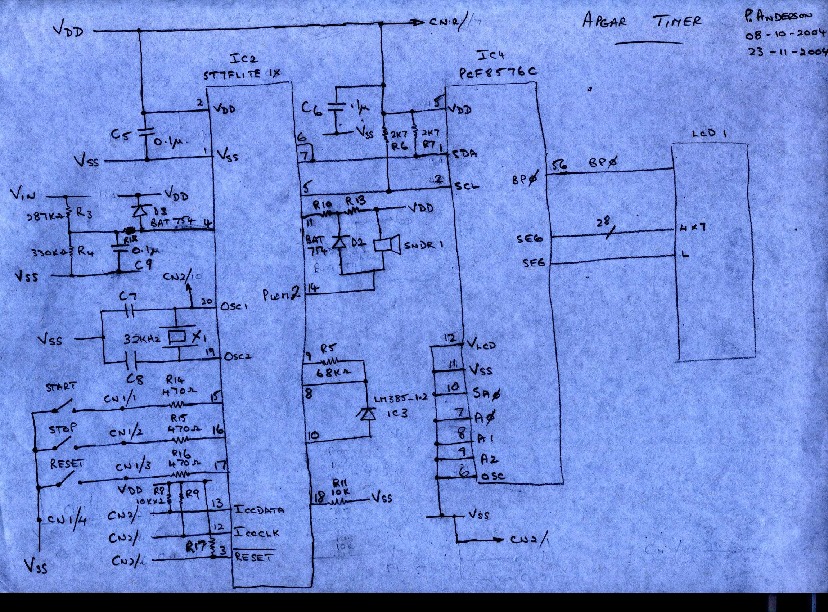 VDD
CN2/
APGAR TIMER
P. ANDERSON
08-10-2004
23-11-2004
IC2
ST7FLITE 1X
IC4
PCF8576C
2 VDD
C5
0.1µ
VSS
1 VSS
C6
.1µ
VSS
6
7
5 VDD
2K7
R6
2K7
R7
1 SDA
2 SCL
5
LCD 1
BPØ
56 BPØ
28
SEG
SEG
4x7
L
VIN
VDD
287KΩ R3
D3
BAT 754
4
330KΩ R4
0.1µ
C9
VSS
11
R10 R13
VDD
BAT 754
D2
SNDR 1
PWM2
14
CN2/10
C7
20 OSC1
VSS
32KHZ
X1
19 OSC2
C8
9
R5
68KΩ
8
LM385-1.2
IC3
10
12 VLCD
11 VSS
10 SAØ
7 AØ
8 A1
9 A2
6 OSC
START
CN1/1
R14
470Ω
15
STOP
CN1/2
R15
470Ω
16
RESET
CN1/3
R16
470Ω
17
VDD
R8
R9
18
R11
10K
VSS
CN1/4
CN2/
13 ICCDATA
CN2/
12 ICCCLK
R17
CN2/
3 RESET
VSS
VSS
CN2/1